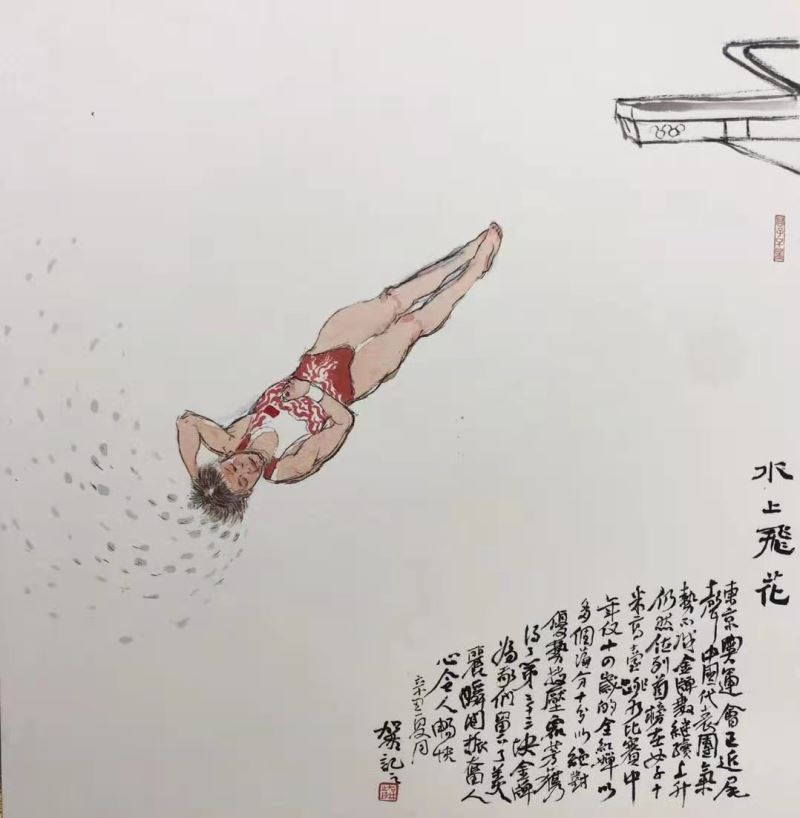 水上飛花
東京奧運會已近尾
聲中國代表團氣
勢不減金牌數繼續上升
仍然位列首榜在女子十
米高臺跳水比賽中
年仅十四歲的全紅嬋以
多個滿分十分以絕對
優勢技壓羣芳獲
得了第三十三块金牌
為我們留下了美
麗瞬间振奮人
心令人暢快
辛丑夏月
賀記之